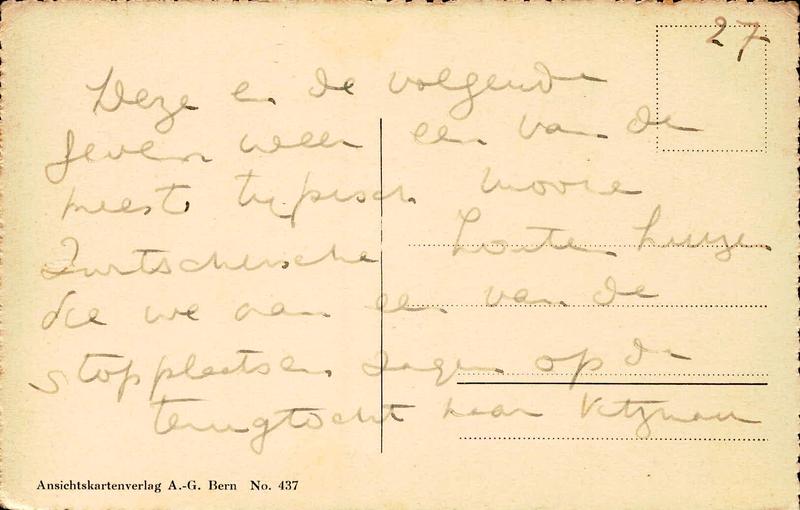 27
Deze en de volgende
geven weer een van de
meest typisch mooie
Zwitschersche houten huizen
die we aan een van de
stopplaatsen zagen op de
terugtocht naar
Ansichtskartenverlag A.-G. Bern No. 437